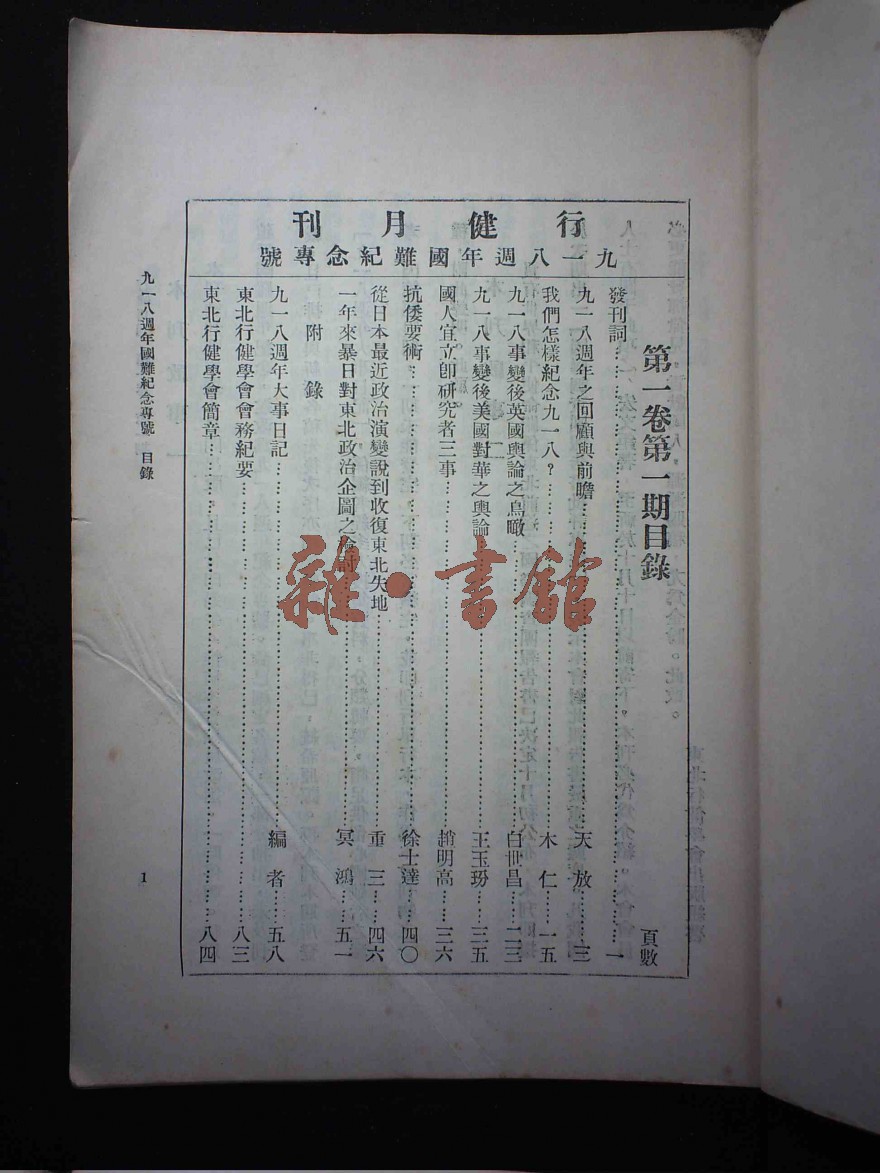 行健月刊
九一八週年國難紀念專號
第一卷第一期目錄 頁數
發刊詞……一
九一八週年之回顧與前瞻……天放……三
我們怎樣紀念九一八？……木仁……一五
九一八事變後英國輿論之鳥瞰……白世昌……二三
九一八事變後美國對華之輿論……王玉玢……三五
國人宜立卽硏究者三事……趙明高……三六
抗倭要術……徐士達……四〇
從日本最近政治演變說到收復東北失地……重三……四六
一年來暴日對東北政治企圖之檢討……冥鴻……五一
附錄
九一八週年大事日記……編者……五八
東北行健學會會務紀要……八三
東北行健學會簡章……八四
九一八週年國難紀念專號 目錄
1
雜·書館